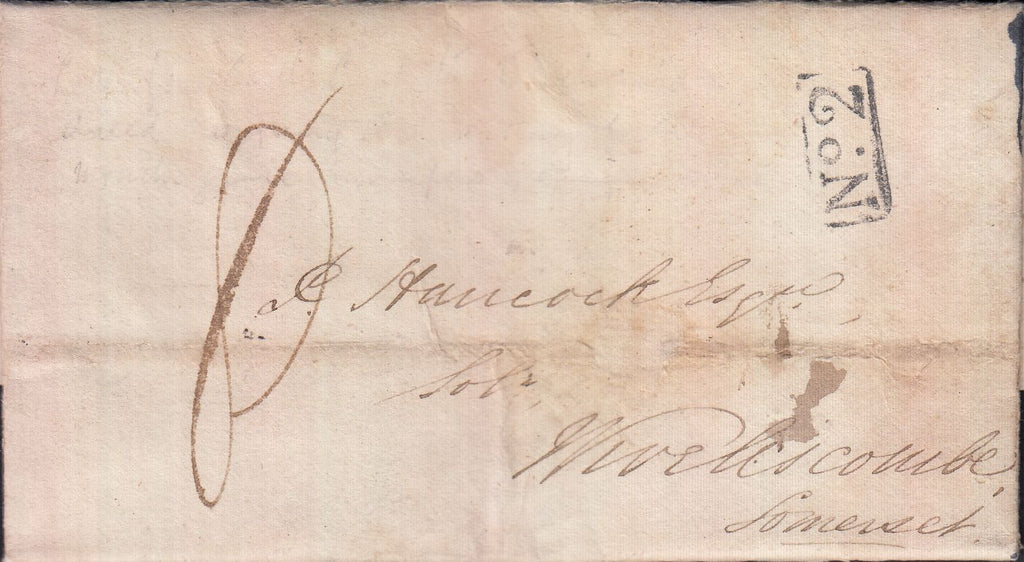 No. 2
P. Hancock Esqr.
Solr,
Wiveliscombe,
Somerset.